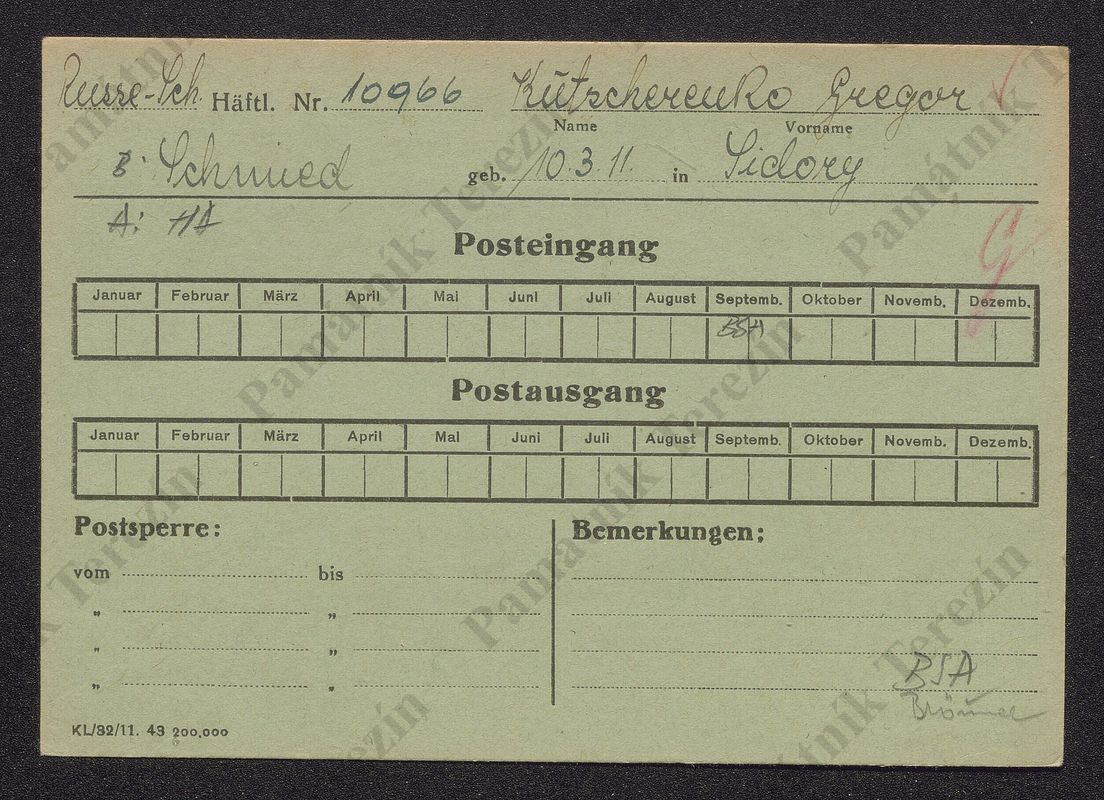 Russe-Sch. Häftl. Nr. 10966 Kŭtscherenko Gregor
Name Vorname
B: Schmied geb. 10.3.11. in Sidory
A:
Posteingang
Januar Februar März April Mai Juni Juli August Septemb. Oktober Novemb. Dezemb.
BSA
Postausgang
Januar Februar März April Mai Juni Juli August Septemb. Oktober Novemb. Dezemb.
Postsperre: Bemerkungen:
vom bis
„ „
„ „
„ „
BSA
KL/32/11. 43 200.000
Památník Terezín